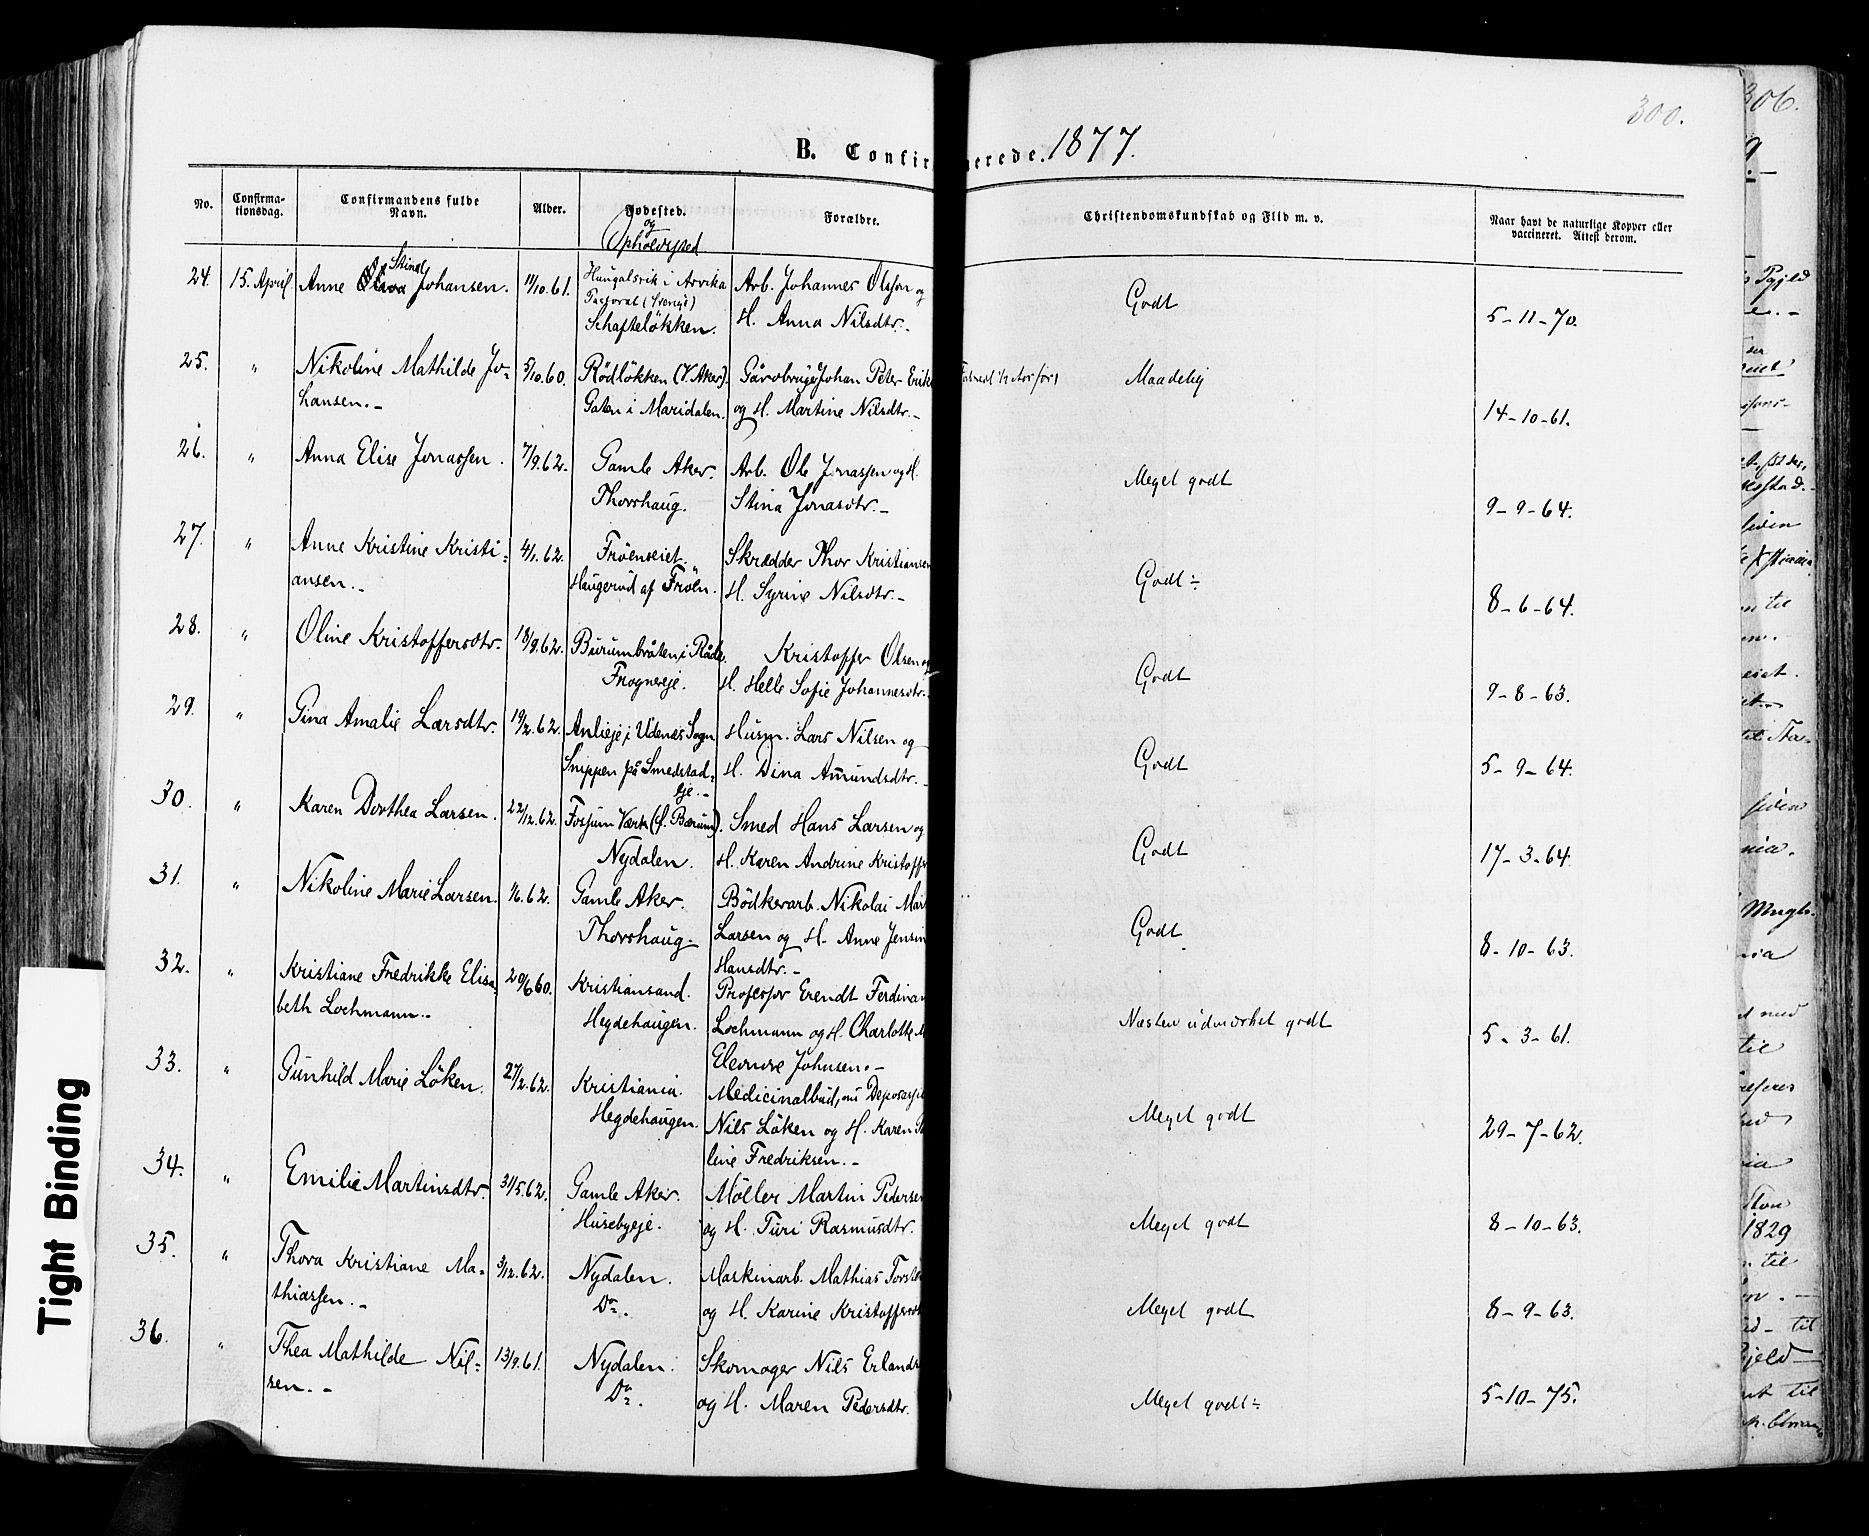 300.
306.
B. Confir erede. 1877.
No. Confirma-tionsdag. Confirmandens fulde Navn. Alder. Fødested. og Opholdssted Forældre. Christendomskundskab og Flid m. v. Naar havt de naturlige Kopper eller vaccineret. Attest derom.
24. 15. April. Anne Stina Johansen. 11/10.61. Haugalsvik i Arvika Arb. Johannes Olsson og Godt 5-11-70.
Pastorat (Sverige) Schafteløkken. H. Anna Nilsdtr.-
25. " Nikoline Mathilde Jo- 5/10.60. Rödlökken (V. Aker). Gårdbruger Johan Peter Erik Maadelig 14-10-61.
hansen.- Gaten i Maridalen. og H. Martine Nilsdtr.-
26. " Anna Elise Jonassen. 7/9.62. Gamle Aker. Arb. Ole Jonassen og H. Meget godt 9-9-64.
Thorshaug. Stina Jonasdtr.-
27. " Anne Kristine Kristi- 4/1.62. Fröenseiet. Skrædder Thor Kristiansen Godt÷ 8-6-64.
ansen.- Haugerud af Fröen. H. Syrine Nilsdtr.-
28. " Oline Kristoffersdtr. 18/9.62. Burumbråten i Råde. Kristoffer Olsen og Godt 9-8-63.
Frognereje. H. Helle Sofie Johannesdtr.-
29. " Gina Amalie Larsdtr. 19/2.62. Anlieje i Udenes Sogn Husm. Lars Nilsen og Godt 5-9-64.
Snippen på Smedstad- eje.- H. Dina Amundsdtr.-
30. " Karen Dorthea Larsen. 22/12.62. Fossum Værk (f. Bærum). Smed Hans Larsen og Godt 17-3-64.
Nydalen. H. Karen Andrine Kristoff
31. " Nikoline Marie Larsen. 1/6.62. Gamle Aker. Bödkerarb. Nikolai Mar Godt 8-10-63.
Thorshaug- Larsen og H. Anne Jensin
Hansdtr.-
32. " Kristiane Fredrikke Elisa- 20/6.60. Kristiansand. Professor Erendt Ferdinan Næsten udmærket godt 5-3-61.
beth Lochmann.- Hegdehaugen. Lochmann og H. Charlotte M
Eleonore Johnsen.-
33. " Gunhild Marie Löken. 27/2.62. Kristiania. Medicinalbud, nu Meget godt 29-7-62.
Hegdehaugen. Nils Löken og H. Karen
line Fredriksen.-
34. " Emilie Martinsdtr. 31/5.62. Gamle Aker. Möller Martin Pedersen Meget godt 8-10-63.
Husebyeje. og H. Turi Rasmusdtr.
35. " Thora Kristiane Ma- 3/12.62. Nydalen. Maskinarb. Mathias Torste Meget godt 8-9-63.
thiassen.- Do. og H. Karine Kristoffersdt
36. " Thea Mathilde Nil- 13/9.61. Nydalen. Skomager Nils Erlands Meget godt÷ 5-10-75.
sen.- Do. og H. Maren Pedersdtr.
Tight Binding
1829